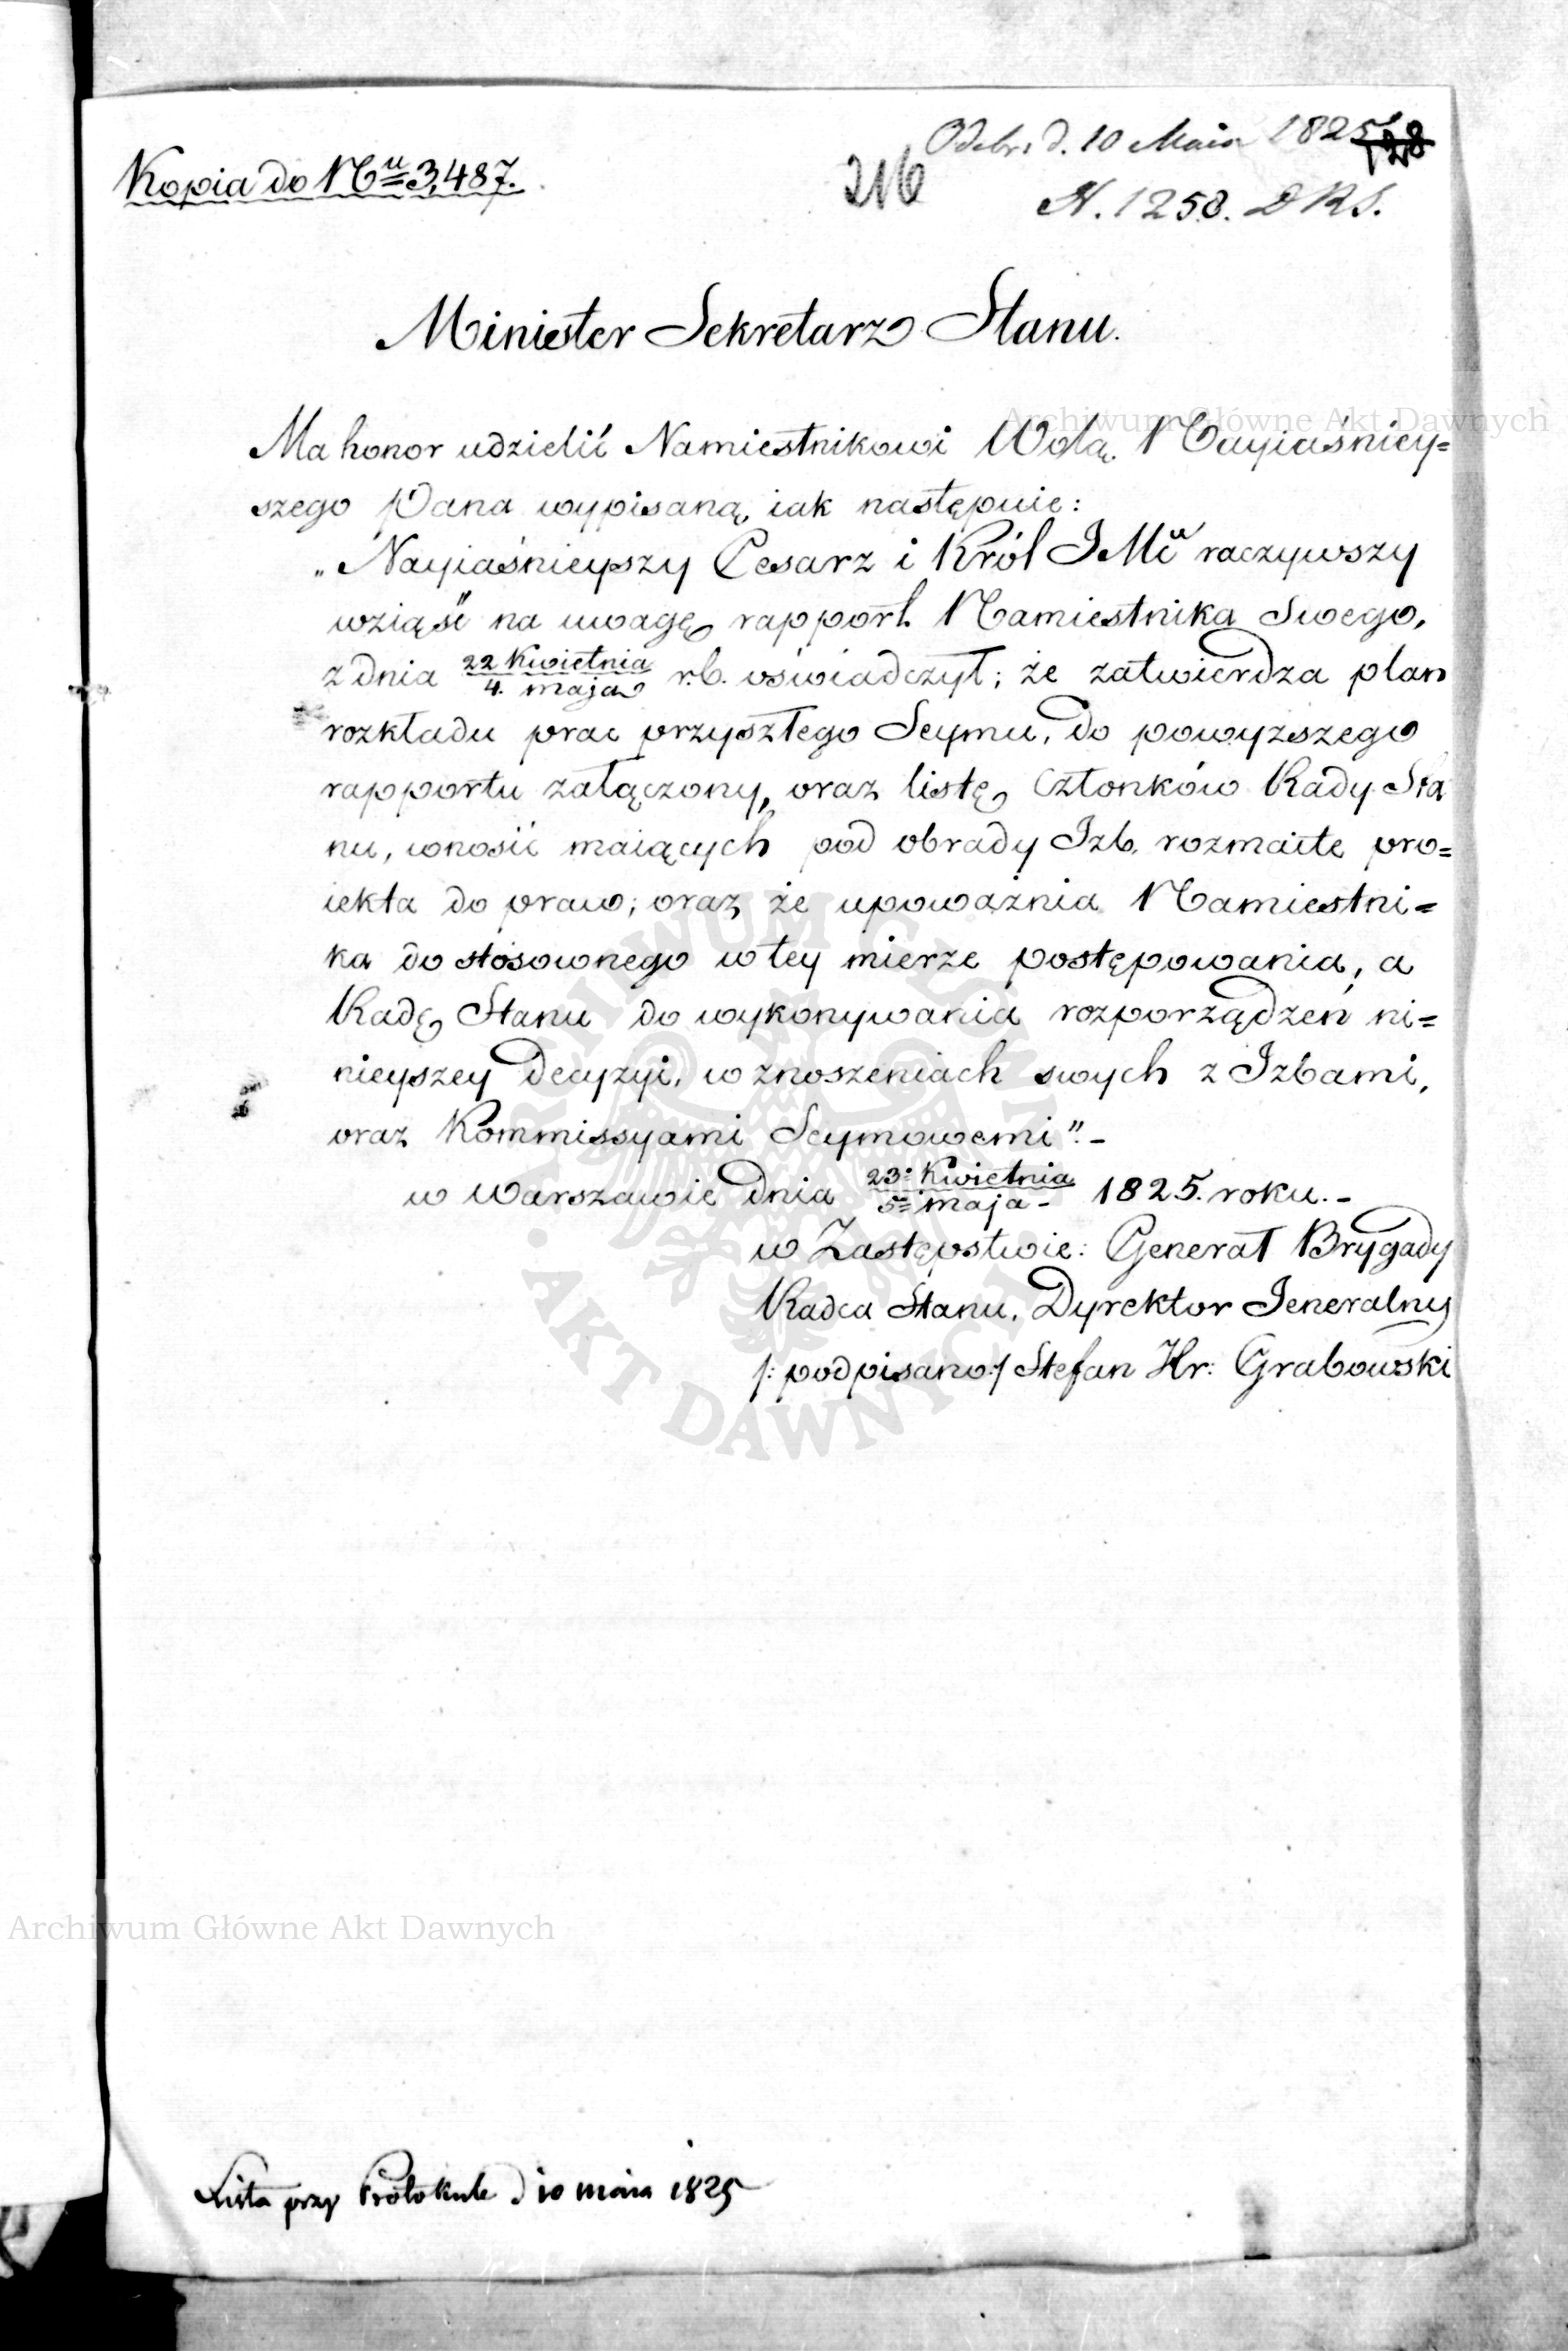 Odebr. d. 10 Maia 1825
Kopia do Nru 3,487.
216
N. 1258. DRS.
Minister Sekretarz Stanu.
Ma honor udzielić Namiestnikowi Wolą Nayiaśniey=
szego Pana wypisaną, iak następuie:
„Nayiaśnieyszy Cesarz i Król JMć raczywszy
wziąść na uwagę rapport Namiestnika Swego,
z dnia 22 Kwietnia / 4. maja r.b. oświadczył; że zatwierdza plan
rozkładu prac przyszłego Seymu, do powyższego
rapportu załączony, oraz listę Członków Rady Sta
nu, wnosić maiących pod obrady Izb, rozmaite pro=
iekta do praw; oraz, że upoważnia Namiestni=
ka do stósownego w tey mierze postępowania, a
Radę Stanu do wykonywania rozporządzeń ni=
nieyszey decyzyi, w znoszeniach swych z Izbami,
oraz Kommissyami Seymowemi”.-
w Warszawie dnia 23: Kwietnia / 5= maja - 1825. roku.-
w Zastępstwie: Generał Brygady
Radca Stanu, Dyrektor Jeneralny
/: podpisano:/ Stefan Hr: Grabowski
Lista przy Protokule d 10 maia 1825
Archiwum Główne Akt Dawnych
Archiwum Główne Akt Dawnych
ARCHIWUM GŁÓWNE
AKT DAWNYCH